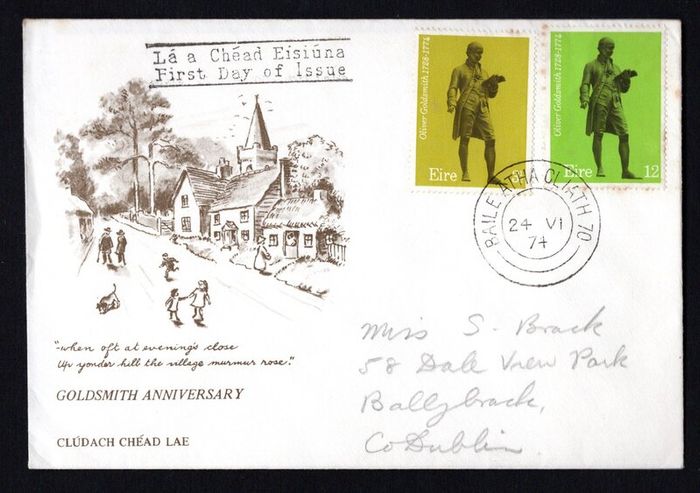 Lá a Chéad Eisiúna
First Day of Issue
Oliver Goldsmith 1728-1774
Éire
Oliver Goldsmith 1728-1774
Éire 12
BAILE ÁTHA CLIATH 70
24 VI
74
"-when oft at evening's close
Up yonder hill the village murmur rose."
GOLDSMITH ANNIVERSARY
CLÚDACH CHÉAD LAE
Miss S. Brack
58 Dale View Park
Ballybrack,
Co Dublin.